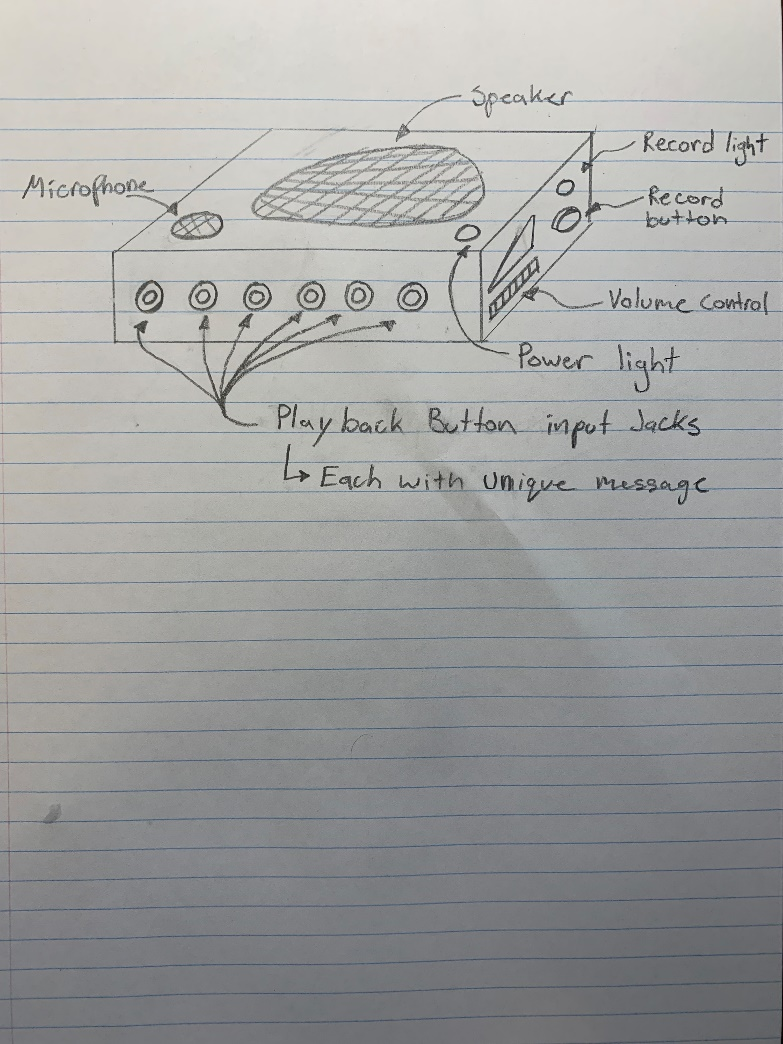 Speaker
Record light
Microphone
Record
button
Volume control
Power light
Playback Button input Jacks
Each with unique message